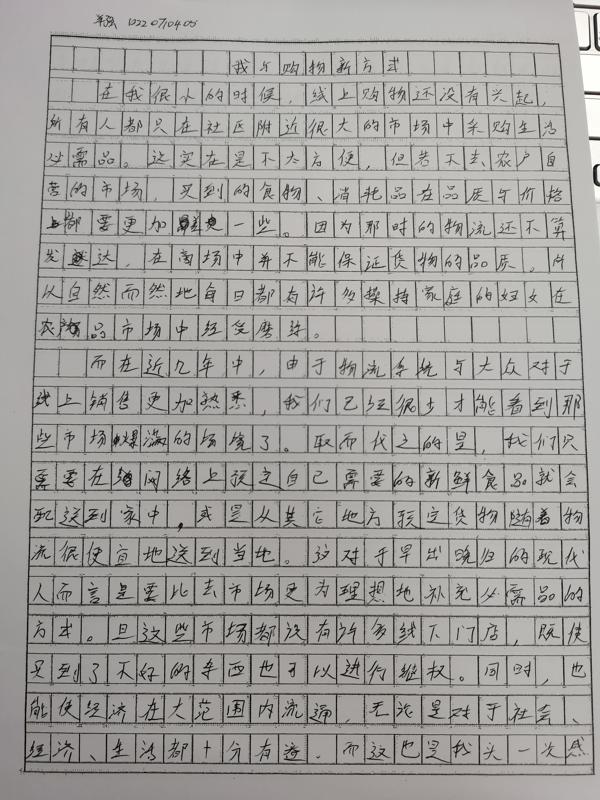 1222 07104 05
我与购物新方式
在我很小的时候，线上购物还没有兴起，
所有人都只在社区附近很大的市场中采购生活
必需品。这实在是不太方便，但若不去农户自
营的市场，买到的食物、消耗品在品质与价格
上都要更加 一些。因为那时的物流还不算
发达，在商场中并不能保证货物的品质。所
以自然而然地每日都有许多操持家庭的妇女在
农产品市场中经受磨练。
而在近几年中，由于物流系统与大众对于
线上销售更加熟悉，我们已经很少才能看到那
些市场爆满的场境了。取而代之的是，我们只
需要在网络上预定自己需要的新鲜食品就会
配送到家中，或是从其它地方预定货物随着物
流很便宜地送到当地。这对于早出晚归的现代
人而言是要比去市场更为理想地补充必需品的
方式。且这些市场都设有许多线下门店，既使
买到了不好的东西也可以进行维权。同时，也
能使经济在大范围内流通，无论是对于社会、
经济、生活都十分有益。而这也是我头一次感